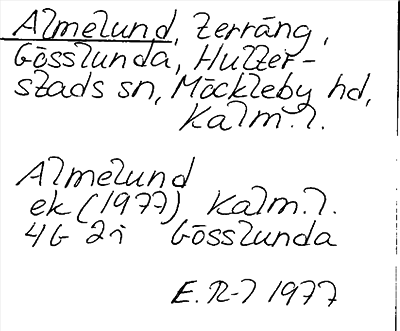 Almelund, terräng,
Gösslunda, Hulter-
stads sn, Möckleby hd,
Kalm. l.
Almelund
ek (1977) Kalm. l.
4G 2i Gösslunda
E. R-l 1977